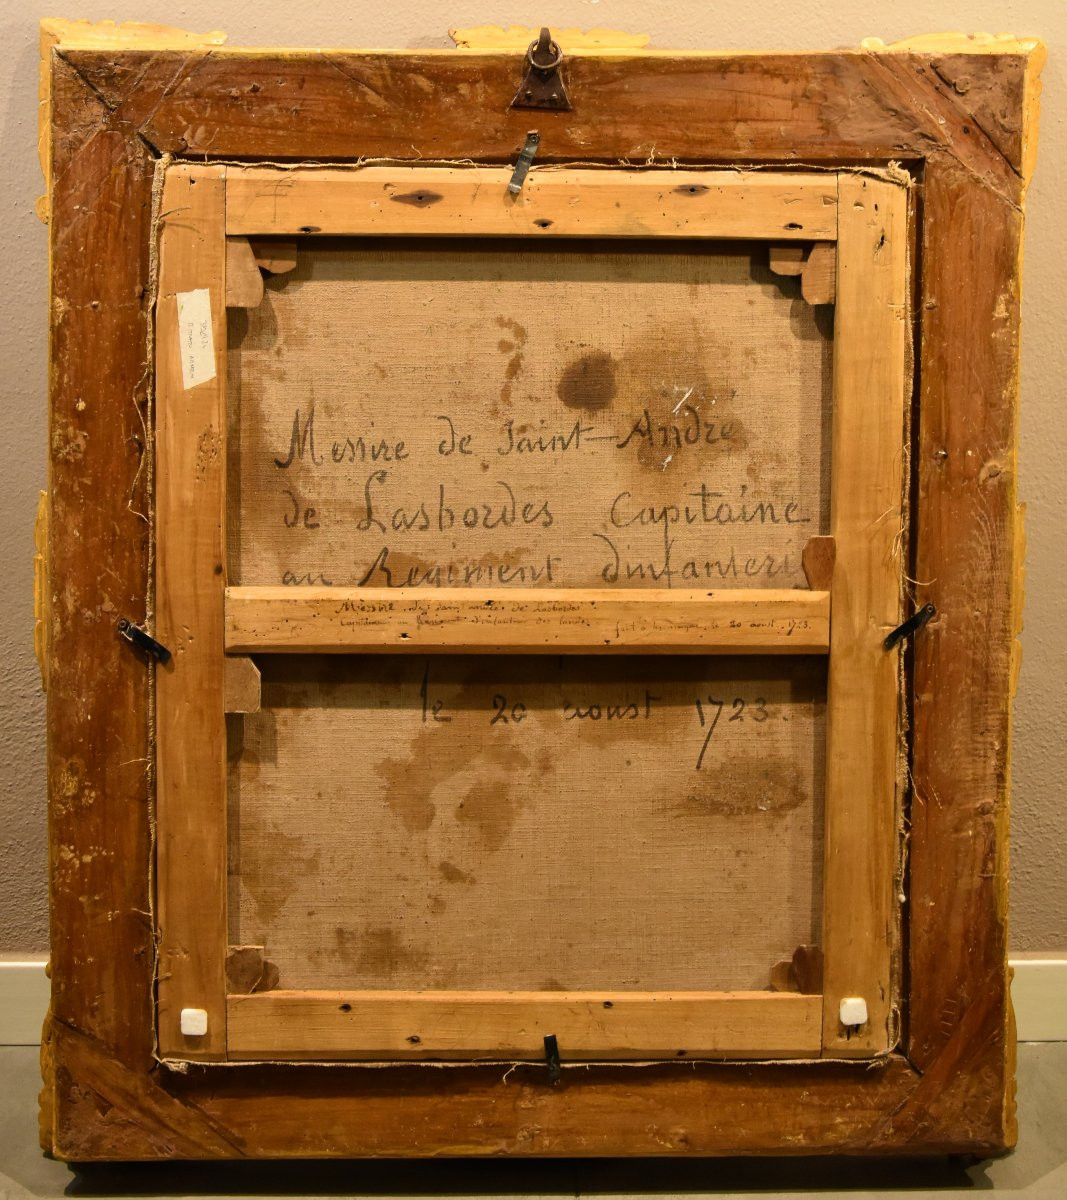 Messire de Saint-André
de Lasbordes Capitaine
au Regiment dinfanteri
Messire de Saint andré de Lasbordes
Capitaine au Regiment d'infanterie des fait à le 20 aoust 1723.
le 20 aoust 1723.